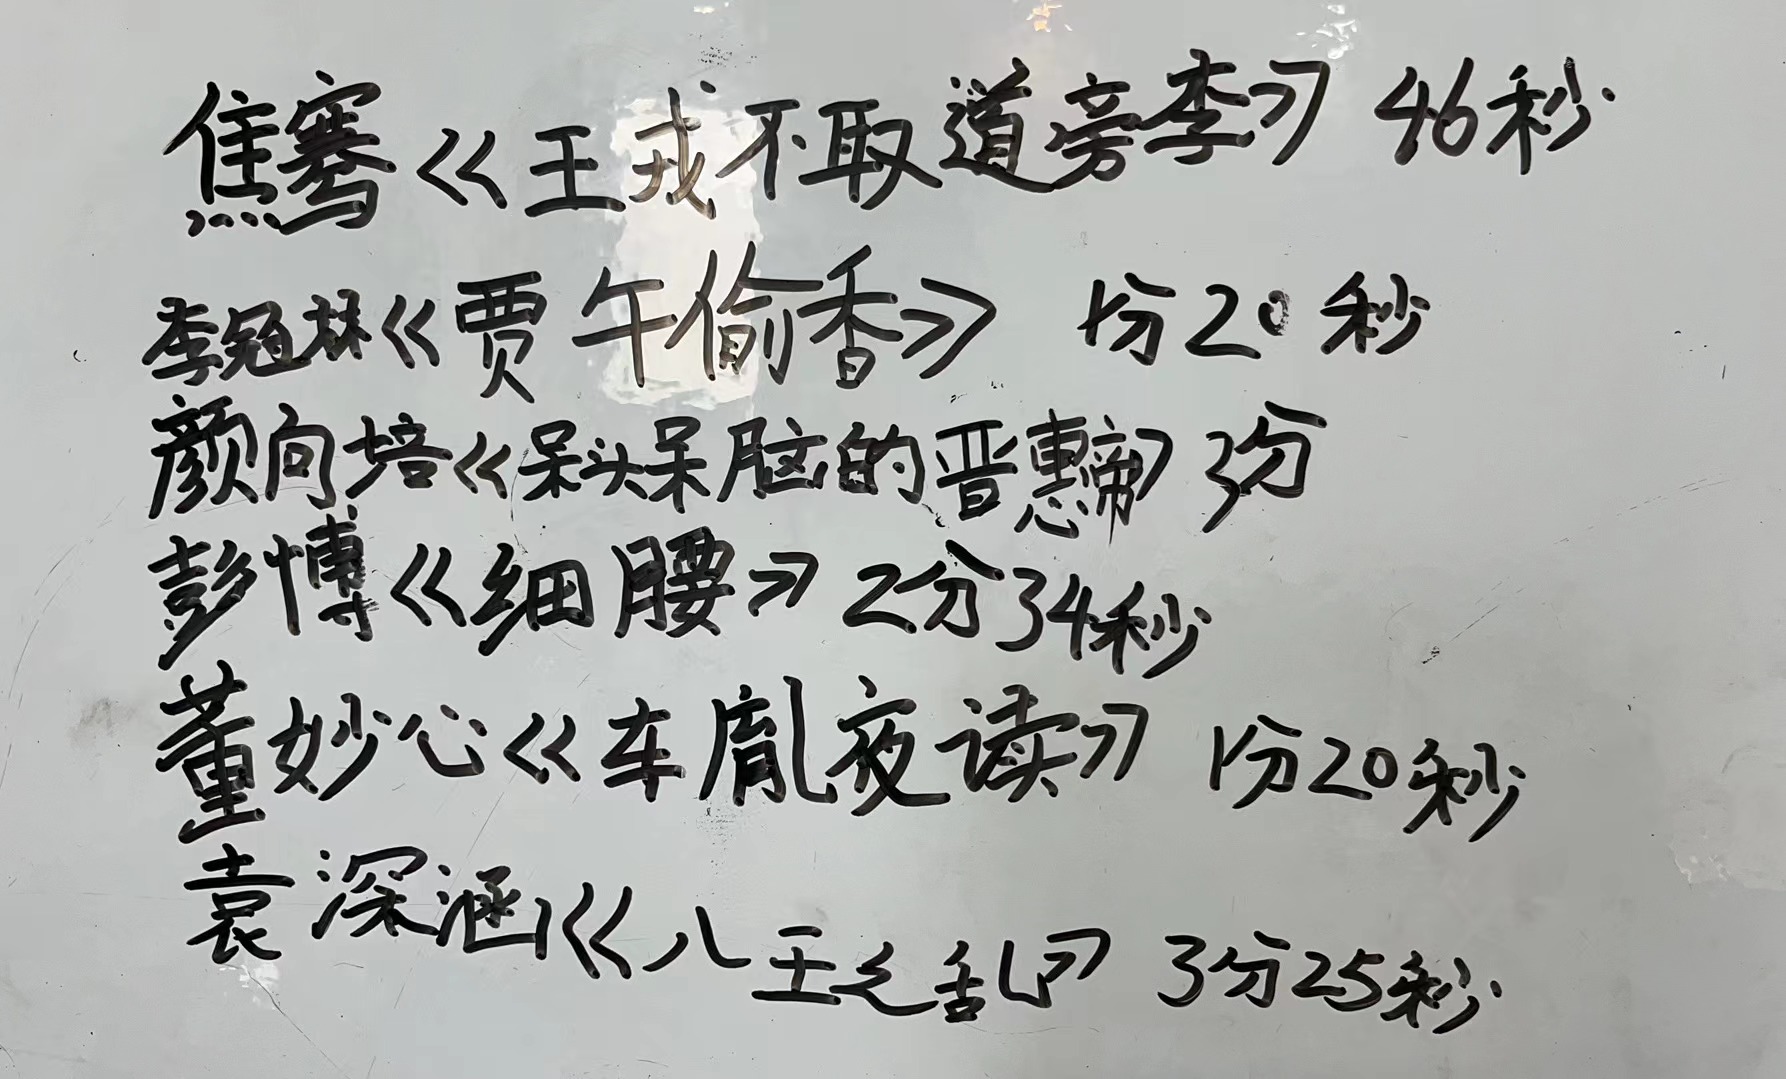 焦骞《王戎不取道旁李》 46秒
李冠霖《贾午偷香》 1分20秒
颜向培《呆头呆脑的晋惠帝》 3分
彭博《细腰》 2分34秒
董妙心《车胤夜读》 1分20秒
袁深涵《八王之乱》 3分25秒